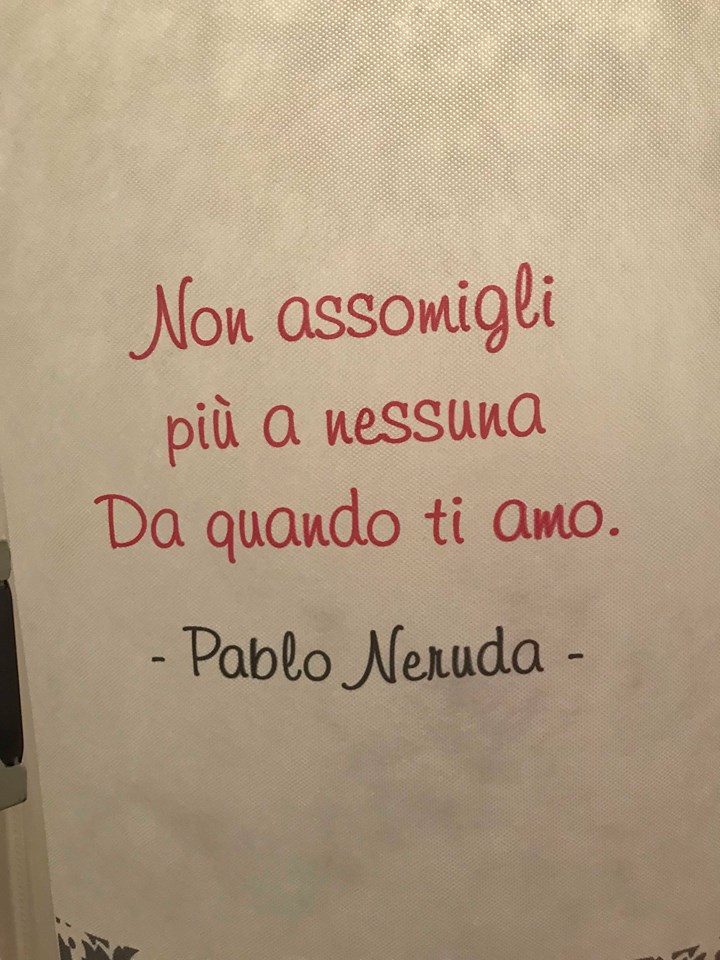 Non assomigli
più a nessuna
Da quando ti amo.
- Pablo Neruda -